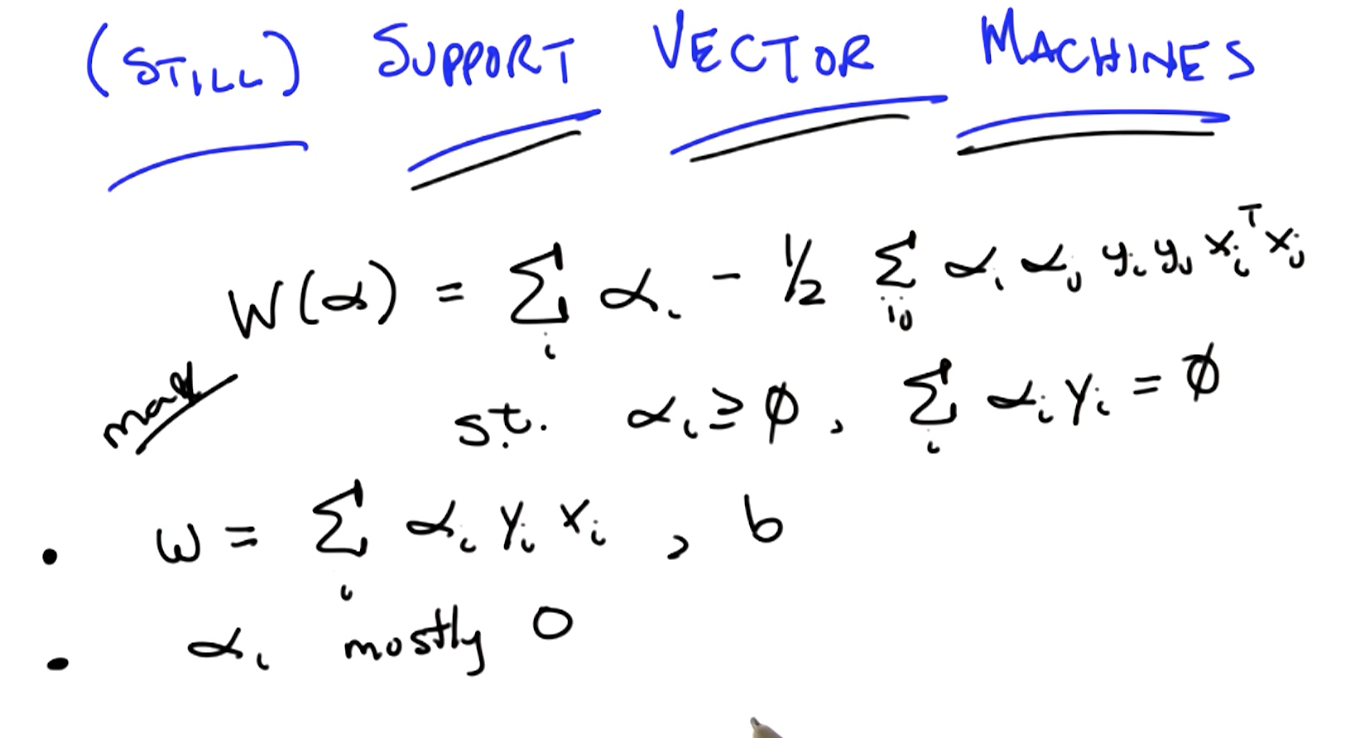 (STILL) SUPPORT VECTOR MACHINES
W(α) = Σ_i α_i - 1/2 Σ_ij α_i α_j y_i y_j x_i^T x_j
max
s.t. α_i ≥ ∅, Σ_i α_i y_i = ∅
• w = Σ_i α_i y_i x_i , b
• α_i mostly 0